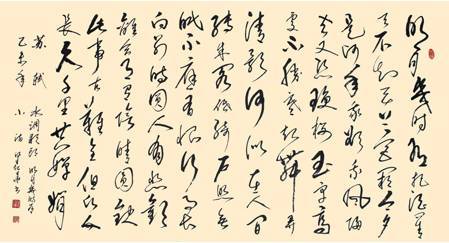 明月幾時有把酒問青
天不知天上宮闕今夕
是何年我欲乘風歸
去又恐瓊樓玉宇高
處不勝寒起舞弄
清影何似在人間
轉朱閣低綺戶照無
眠不應有恨何事長
向別時圓人有悲歡
離合月有陰晴圓缺
此事古難全但願人
長久千里共嬋娟
蘇軾 水調歌頭 明月幾時有
乙未年 小滿 書